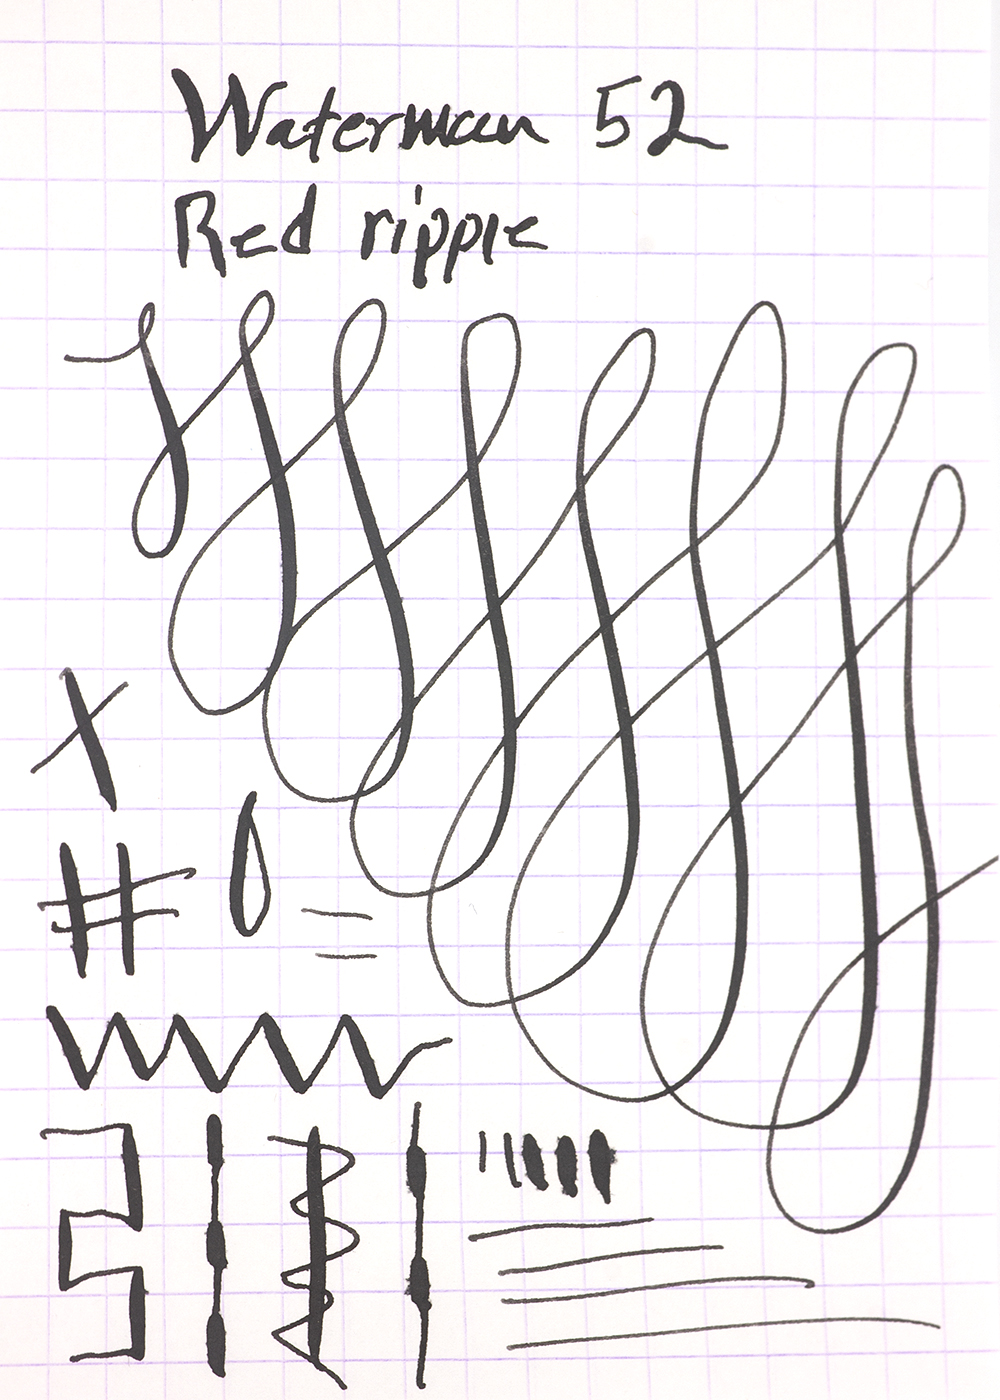 Waterman 52
Red ripple